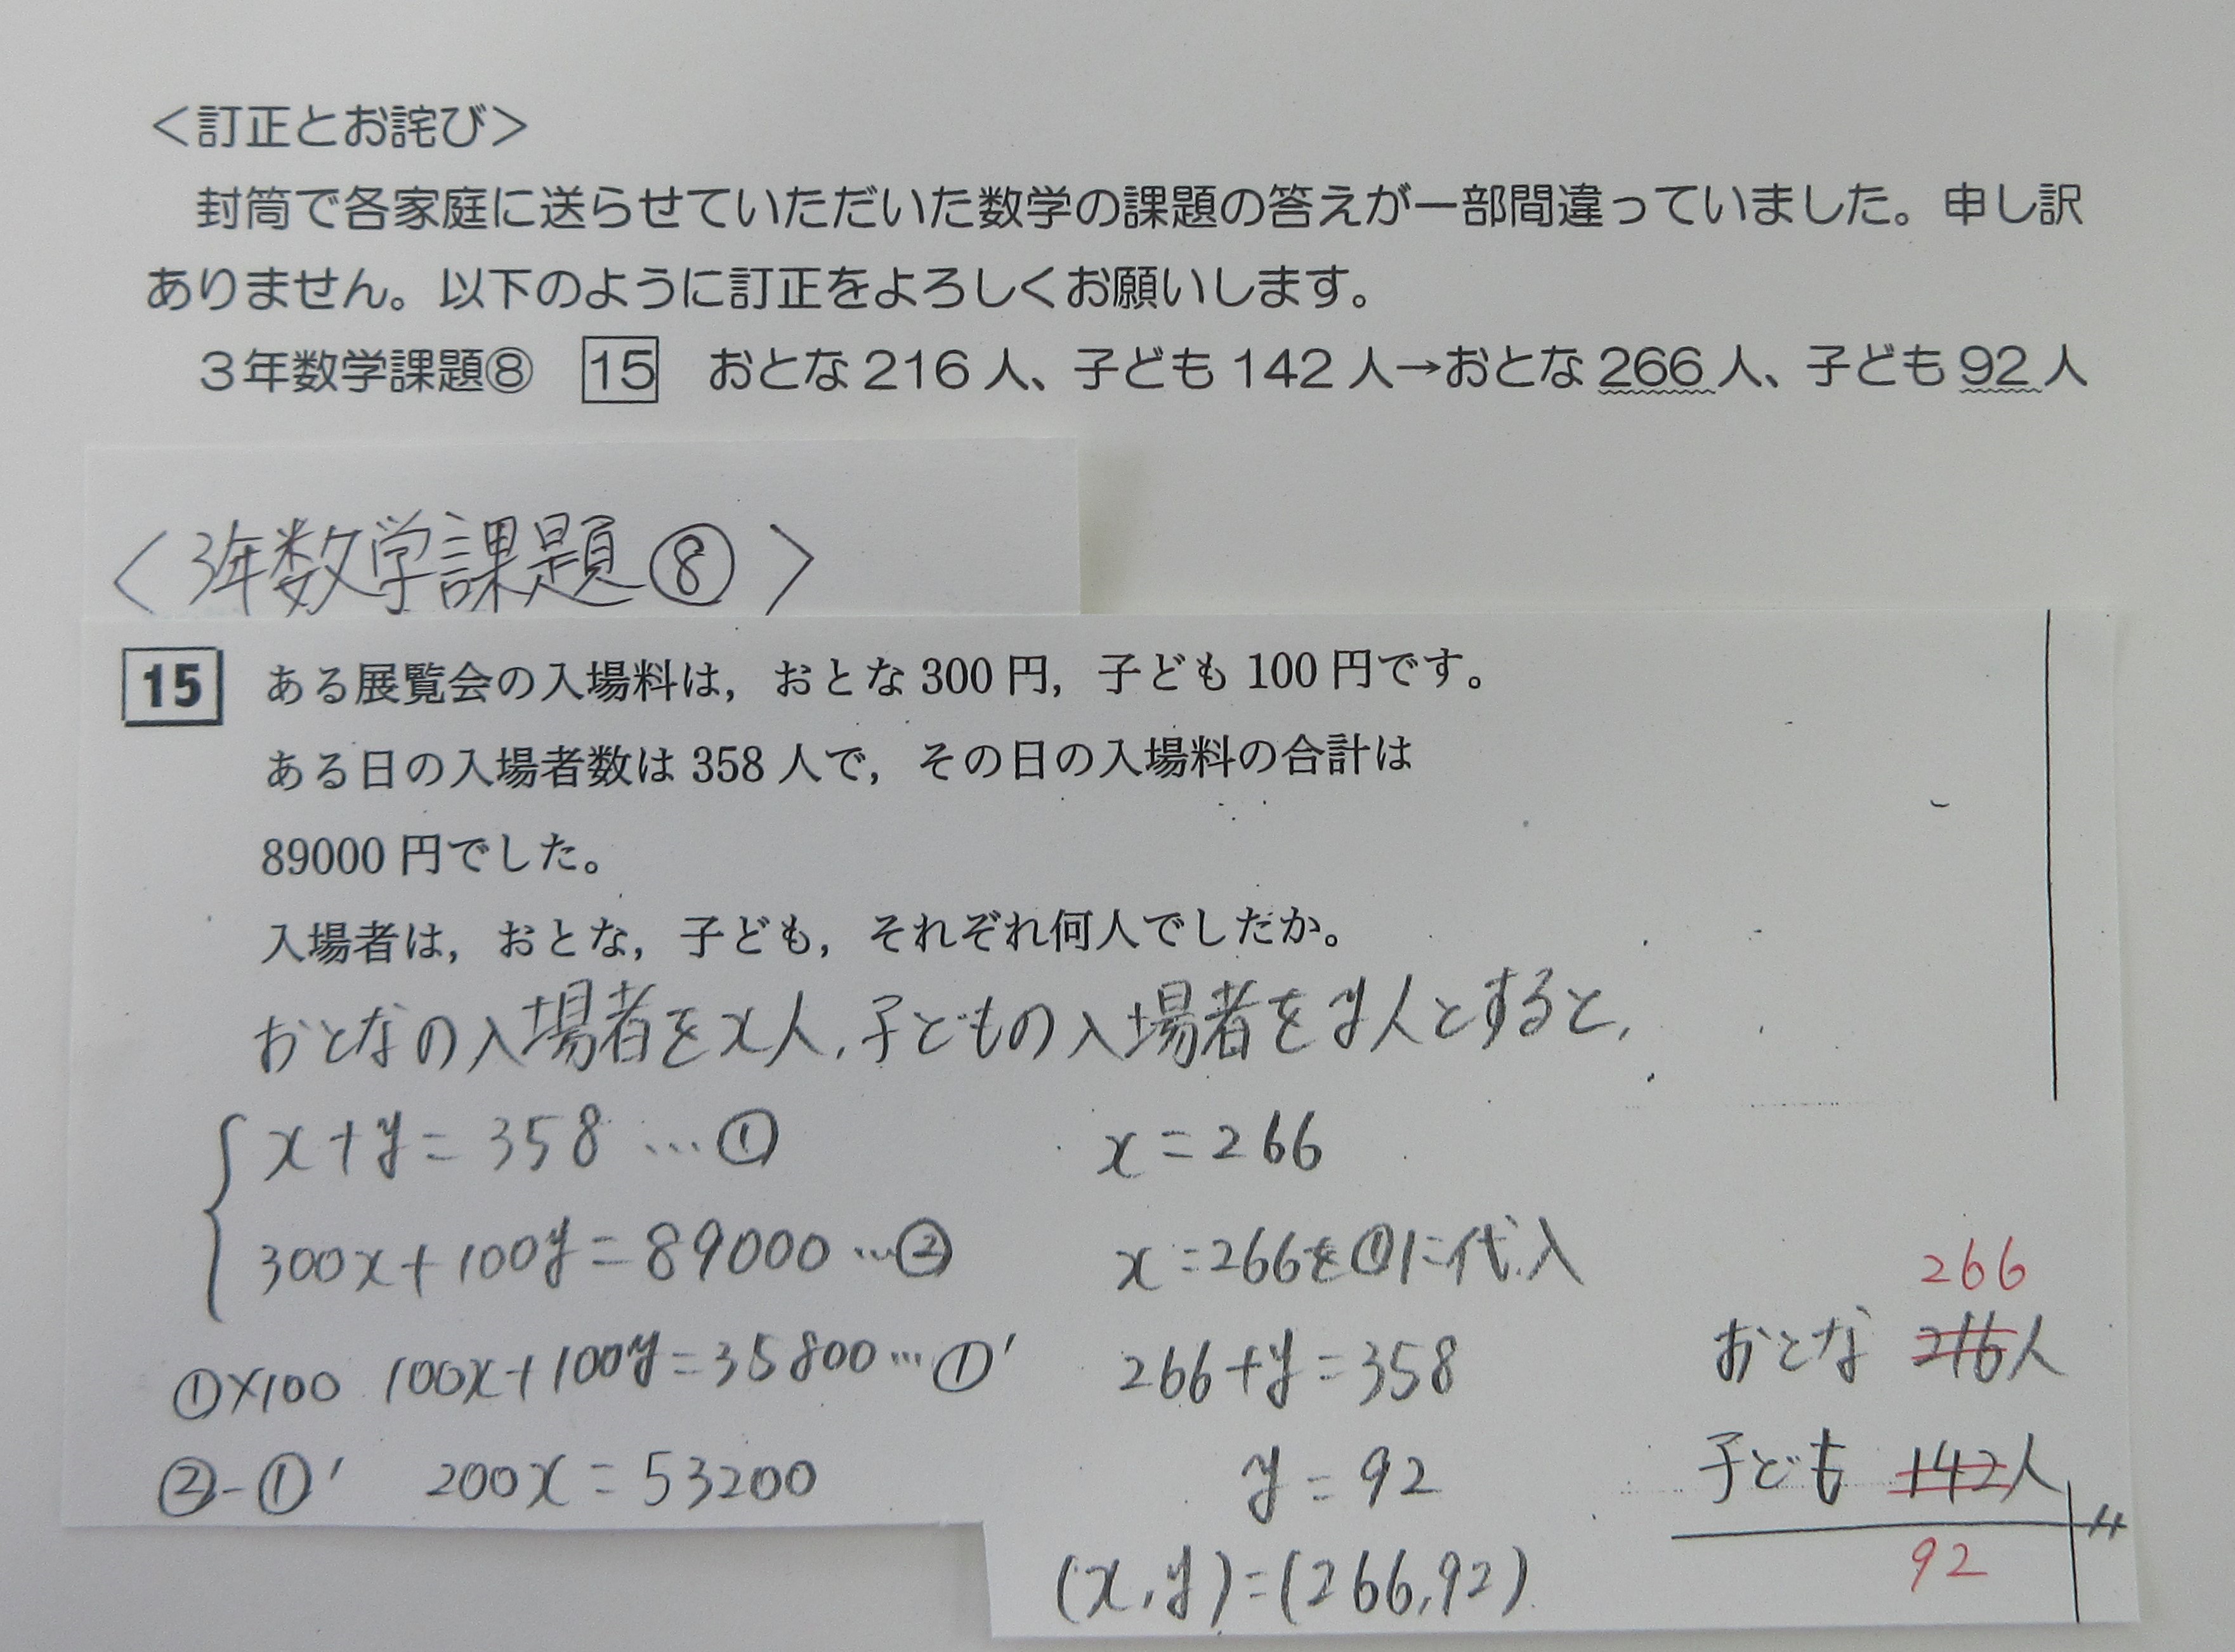 ＜訂正とお詫び＞
封筒で各家庭に送らせていただいた数学の課題の答えが一部間違っていました。申し訳
ありません。以下のように訂正をよろしくお願いします。
３年数学課題⑧ 15 おとな216人、子ども142人→おとな266人、子ども92人
＜3年数学課題⑧＞
15 ある展覧会の入場料は，おとな300円，子ども100円です。
ある日の入場者数は358人で，その日の入場料の合計は
89000円でした。
入場者は，おとな，子ども，それぞれ何人でしたか。
おとなの入場者をx人，子どもの入場者をy人とすると，
x+y=358 …①
300x+100y=89000 …②
①×100 100x+100y=35800 …①'
②-①' 200x=53200
x=266
x=266を①に代入
266+y=358
y=92
(x,y)=(266,92)
266
おとな 216人
子ども 142人
92